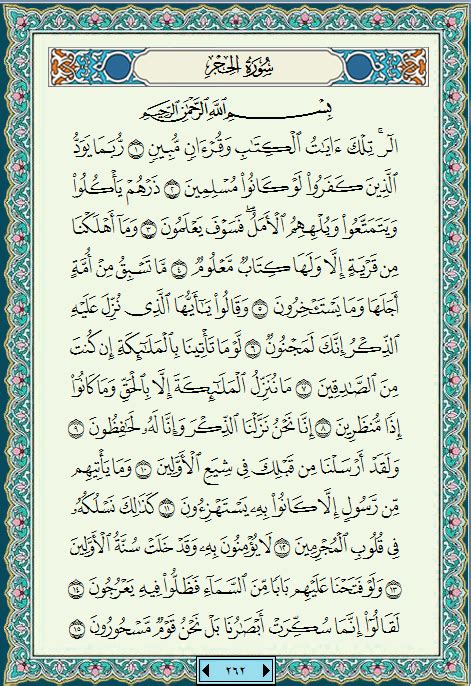 سُورَةُ الحِجْرِ
بِسْمِ اللَّهِ الرَّحْمَٰنِ الرَّحِيمِ
الٓر ۚ تِلْكَ ءَايَٰتُ ٱلْكِتَٰبِ وَقُرْءَانٍ مُّبِينٍ ١ رُّبَمَا يَوَدُّ
ٱلَّذِينَ كَفَرُوا۟ لَوْ كَانُوا۟ مُسْلِمِينَ ٢ ذَرْهُمْ يَأْكُلُوا۟
وَيَتَمَتَّعُوا۟ وَيُلْهِهِمُ ٱلْأَمَلُ ۖ فَسَوْفَ يَعْلَمُونَ ٣ وَمَآ أَهْلَكْنَا
مِن قَرْيَةٍ إِلَّا وَلَهَا كِتَابٌ مَّعْلُومٌ ٤ مَّا تَسْبِقُ مِنْ أُمَّةٍ
أَجَلَهَا وَمَا يَسْتَـْٔخِرُونَ ٥ وَقَالُوا۟ يَٰٓأَيُّهَا ٱلَّذِى نُزِّلَ عَلَيْهِ
ٱلذِّكْرُ إِنَّكَ لَمَجْنُونٌ ٦ لَّوْ مَا تَأْتِينَا بِٱلْمَلَٰٓئِكَةِ إِن كُنتَ
مِنَ ٱلصَّٰدِقِينَ ٧ مَا نُنَزِّلُ ٱلْمَلَٰٓئِكَةَ إِلَّا بِٱلْحَقِّ وَمَا كَانُوٓا۟
إِذًا مُّنظَرِينَ ٨ إِنَّا نَحْنُ نَزَّلْنَا ٱلذِّكْرَ وَإِنَّا لَهُۥ لَحَٰفِظُونَ ٩
وَلَقَدْ أَرْسَلْنَا مِن قَبْلِكَ فِى شِيَعِ ٱلْأَوَّلِينَ ١٠ وَمَا يَأْتِيهِم
مِّن رَّسُولٍ إِلَّا كَانُوا۟ بِهِۦ يَسْتَهْزِءُونَ ١١ كَذَٰلِكَ نَسْلُكُهُۥ
فِى قُلُوبِ ٱلْمُجْرِمِينَ ١٢ لَا يُؤْمِنُونَ بِهِۦ ۖ وَقَدْ خَلَتْ سُنَّةُ ٱلْأَوَّلِينَ
١٣ وَلَوْ فَتَحْنَا عَلَيْهِم بَابًا مِّنَ ٱلسَّمَآءِ فَظَلُّوا۟ فِيهِ يَعْرُجُونَ ١٤
لَقَالُوٓا۟ إِنَّمَا سُكِّرَتْ أَبْصَٰرُنَا بَلْ نَحْنُ قَوْمٌ مَّسْحُورُونَ ١٥
٢٦٢